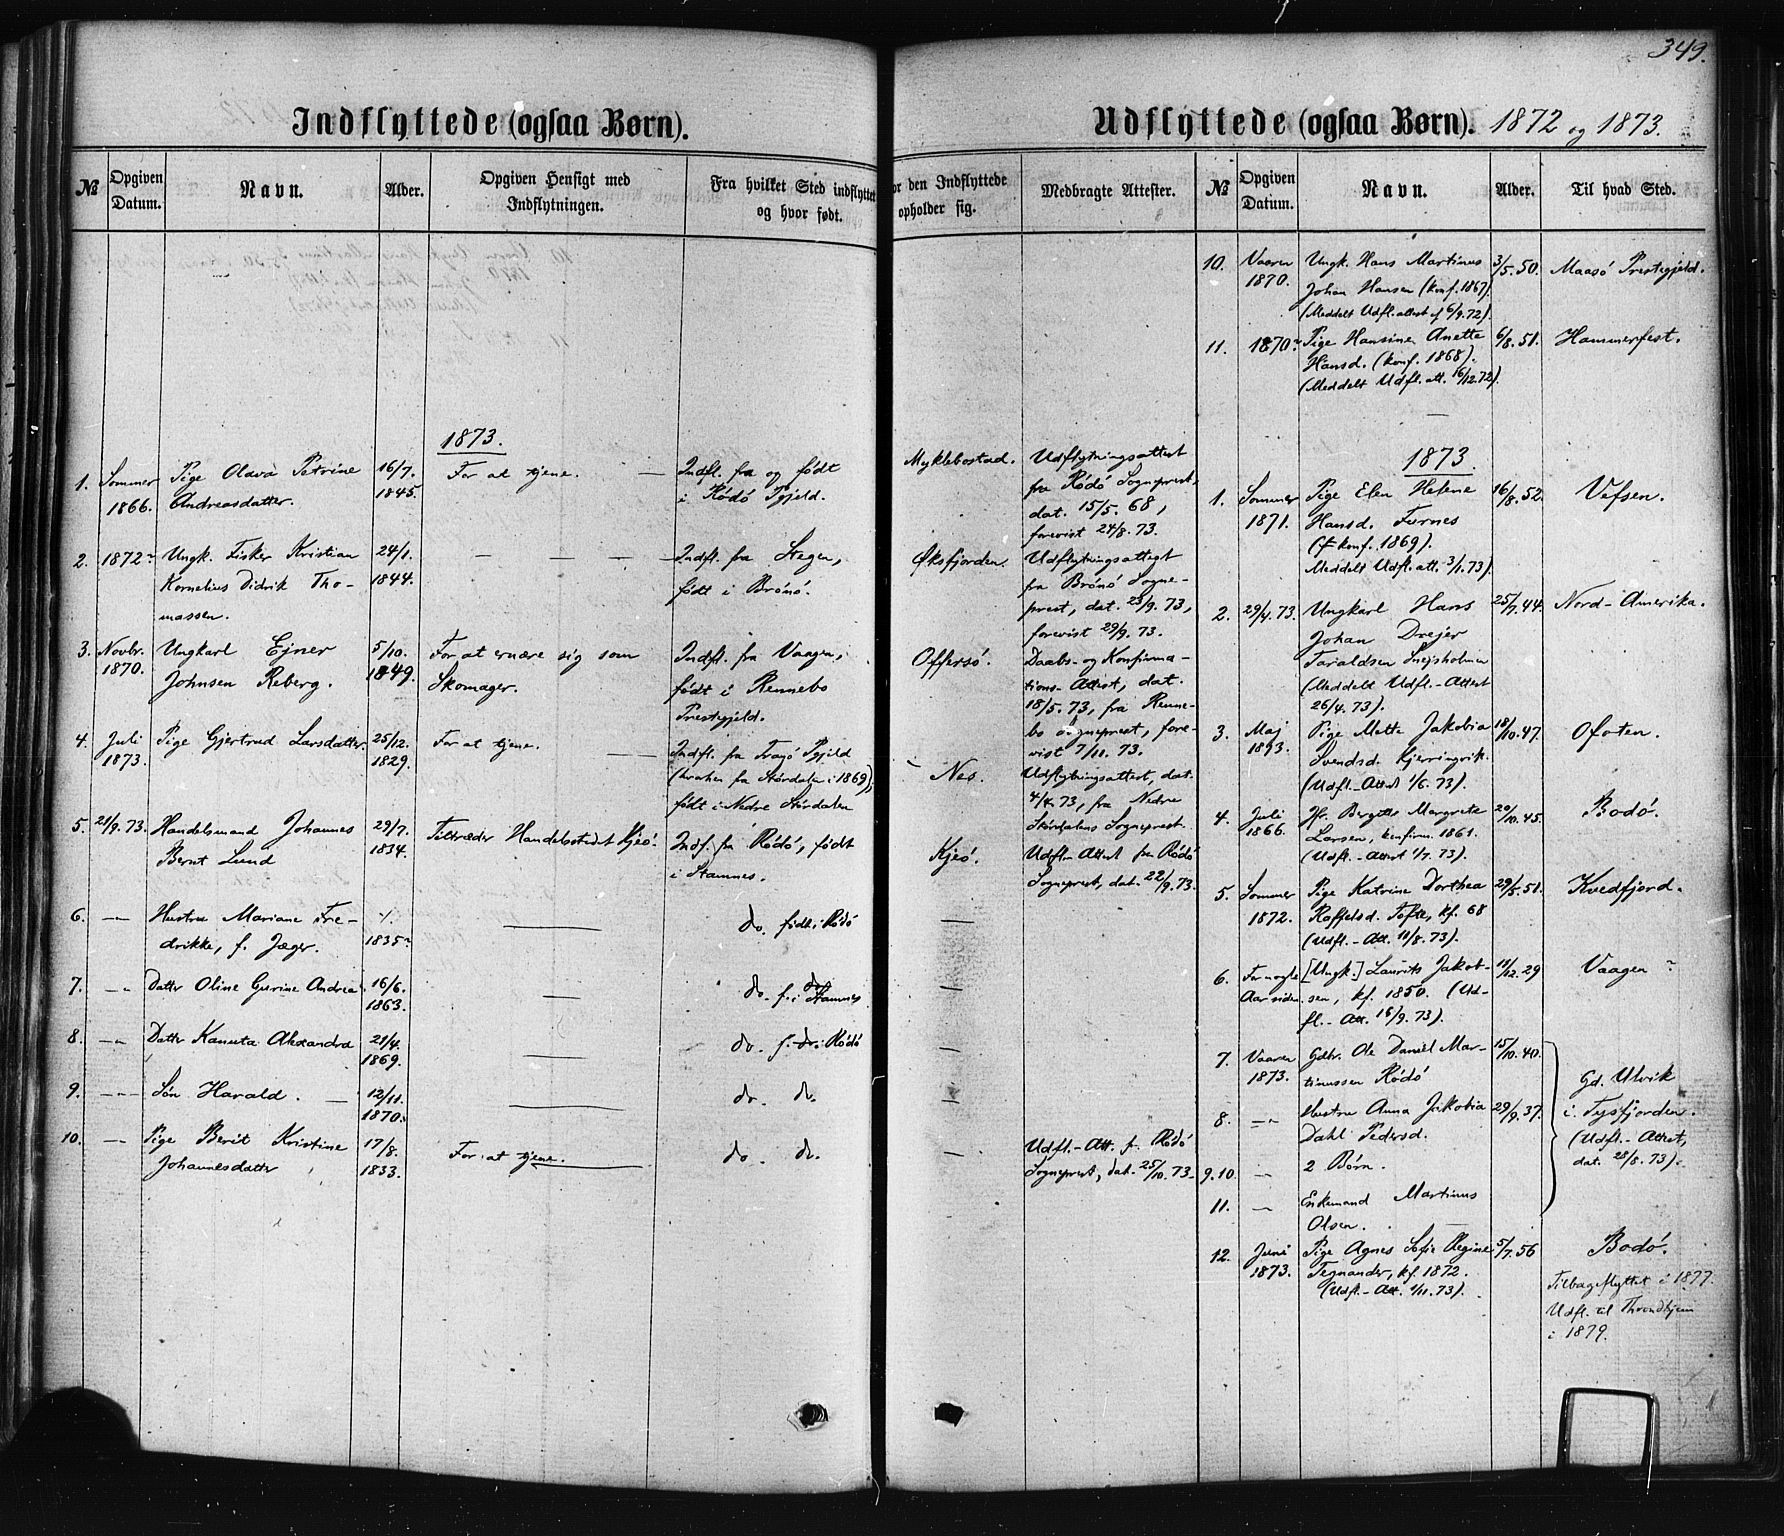 349.
Indflyttede (ogsaa Børn).
№
Opgiven Datum.
Navn.
Alder.
Opgiven Hensigt med Indflytningen.
Fra hvilket Sted indflyttet og hvor født.
1873.
1. Sommer 1866.
Pige Olava Petrine
Andreasdatter.
16/7. 1845.
For at tjene. —
Indfl. fra og født
i Rödö Pgjeld.
2. 1872
Ungk. Fisker Kristian
Kornelius Didrik Tho-
massen.
24/1. 1844.
— — —
Indfl. fra Stegen,
født i Brönö.
3. Novbr. 1870.
Ungkarl Ejner
Johnsen Reberg.
5/10. 1849.
For at ernære sig som
Skomager.
Indfl. fra Vaagen,
født i Rennebo
Prestegjeld.
4. Juli 1873.
Pige Gjertrud Larsdatter
25/12. 1829.
For at tjene. —
Indfl. fra Pgjeld
fra Stördalen i 1869),
født i Nedre Stördalen
5. 21/9. 73.
Handelsmand Johannes
Bernt Lund
29/7. 1834.
Tiltræder Handelsstedet Kjeö.
Indfl. fra Rödö, født
i Stamnes.
6. —"—
Hustru Mariane Fre-
drikke, f. Jæger.
1835
—
do. født i Rödö
7. —"—
Datter Oline Gurine Andrea
16/6. 1863.
—
do. f. i Stamnes do.
8. —"—
Datter Kanuta Alexandra
21/4. 1869.
—
do. f. do. i Rödö
9. —"—
Søn Harald. —
12/11. 1870.
—
do. do.
10. —"—
Pige Berit Kristine
Johannesdatter
17/8. 1833.
For at tjene.
do. do.
Udflyttede (ogsaa Børn). 1872 og 1873.
or den Indflyttede opholder sig.
Medbragte Attester.
№
Opgiven Datum.
Navn.
Alder.
Til hvad Sted.
Myklebostad.
Udflytningsattest
fra Rödö Sogneprest,
dat. 15/5. 68,
forevist 24/8. 73.
Øksfjorden.
Udflytningsattest
fra Brönö Sogne-
prest, dat. 23/9. 73,
forevist 29/9. 73.
Offersö.
Daabs- og Konfirma-
tions-Attest, dat.
18/5. 73, fra Renne-
bo Sogneprest, fore-
vist 7/11. 73.
Nes.
Udflytningsattest, dat.
4/4. 73, fra Nedre
Stördalens Sogneprest.
Kjeö.
Udfl.-Attest fra Rödö
Sogneprest, dat. 22/9. 73.
—
—
—
—
—
Udfl.-Att. f. Rödö
Sogneprest, dat. 25/10. 73.
10. Vaaren 1870.
Ungk. Hans Martinus
Johan Hansen (konf. 1867).
(Meddelt Udfl.attest 6/9. 72).
3/5. 50.
Maasö Prestegjeld.
11. 1870
Pige Hansine Anette
Hansd. (konf. 1868).
(Meddelt Udfl. att. 16/12. 72).
6/8. 51.
Hammerfest.
1873.
1. Sommer 1871.
Pige Elen Helene
Hansd. Furnes
(konf. 1869).
Meddelt Udfl. att. 3/1. 73).
16/8. 52.
Vefsen.
2. 29/4. 73.
Ungkarl Hans
Johan Drejer
Taraldsen Snejsholmen
(Meddelt Udfl.-Attest
26/4. 73).
25/7. 44.
Nord-Amerika.
3. Maj 1873.
Pige Mette Jakobia
Svendsd. Kjerringvik.
(Udfl.-Attest 1/6. 73).
18/10. 47.
Ofoten.
4. Juli 1866.
Jfr. Bergitte Margrete
Larsen, konfirm. 1861.
(Udfl.-Attest 1/7. 73).
20/10. 45.
Bodö.
5. Sommer 1872.
Pige Katrine Dorthea
Raffelsd. Tofte, kf. 68
(Udfl.-Att. 11/8. 73).
29/5. 51.
Kvedfjord.
6. For nogle Aar siden.
[Ungk.] Laurits Jakob-
sen, kf. 1850. (Ud-
fl.-Att. 16/9. 73).
11/12. 29
Vaagen ?
7. Vaaren 1873.
Gdbr. Ole Daniel Mar-
tinussen Rödö
15/10. 40.
8. —"—
Hustru Anna Jakobia
Dahl Pedersd.
29/9. 37.
9.10. —"—
2 Børn.
11. —"—
Enkemand Martinus
Olsen.
Gd. Ulvik
i Tysfjorden.
(Udfl.-Attest,
dat. 25/8. 73).
12. Juni 1873.
Pige Agnes Sofie Regine
Tegnander, kf. 1872.
(Udfl.-Att. 1/11. 73).
5/7. 56
Bodö.
Tilbageflyttet i 1877.
Udfl. til Throndhjem
i 1879.